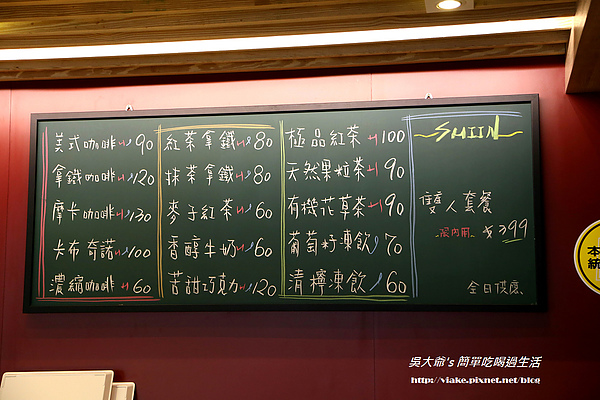 美式咖啡 90
拿鐵咖啡 120
摩卡咖啡 130
卡布奇諾 100
濃縮咖啡 60
紅茶拿鐵 80
抹茶拿鐵 80
麥子紅茶 60
香醇牛奶 60
苦甜巧克力 120
極品紅茶 100
天然果粒茶 90
有機花草茶 90
葡萄籽凍飲 70
清檸凍飲 60
SHIIN
雙人套餐
-限內用- $399
全日供應
本
統
吳大爺's 簡單吃喝過生活
http://viake.pixnet.net/blog